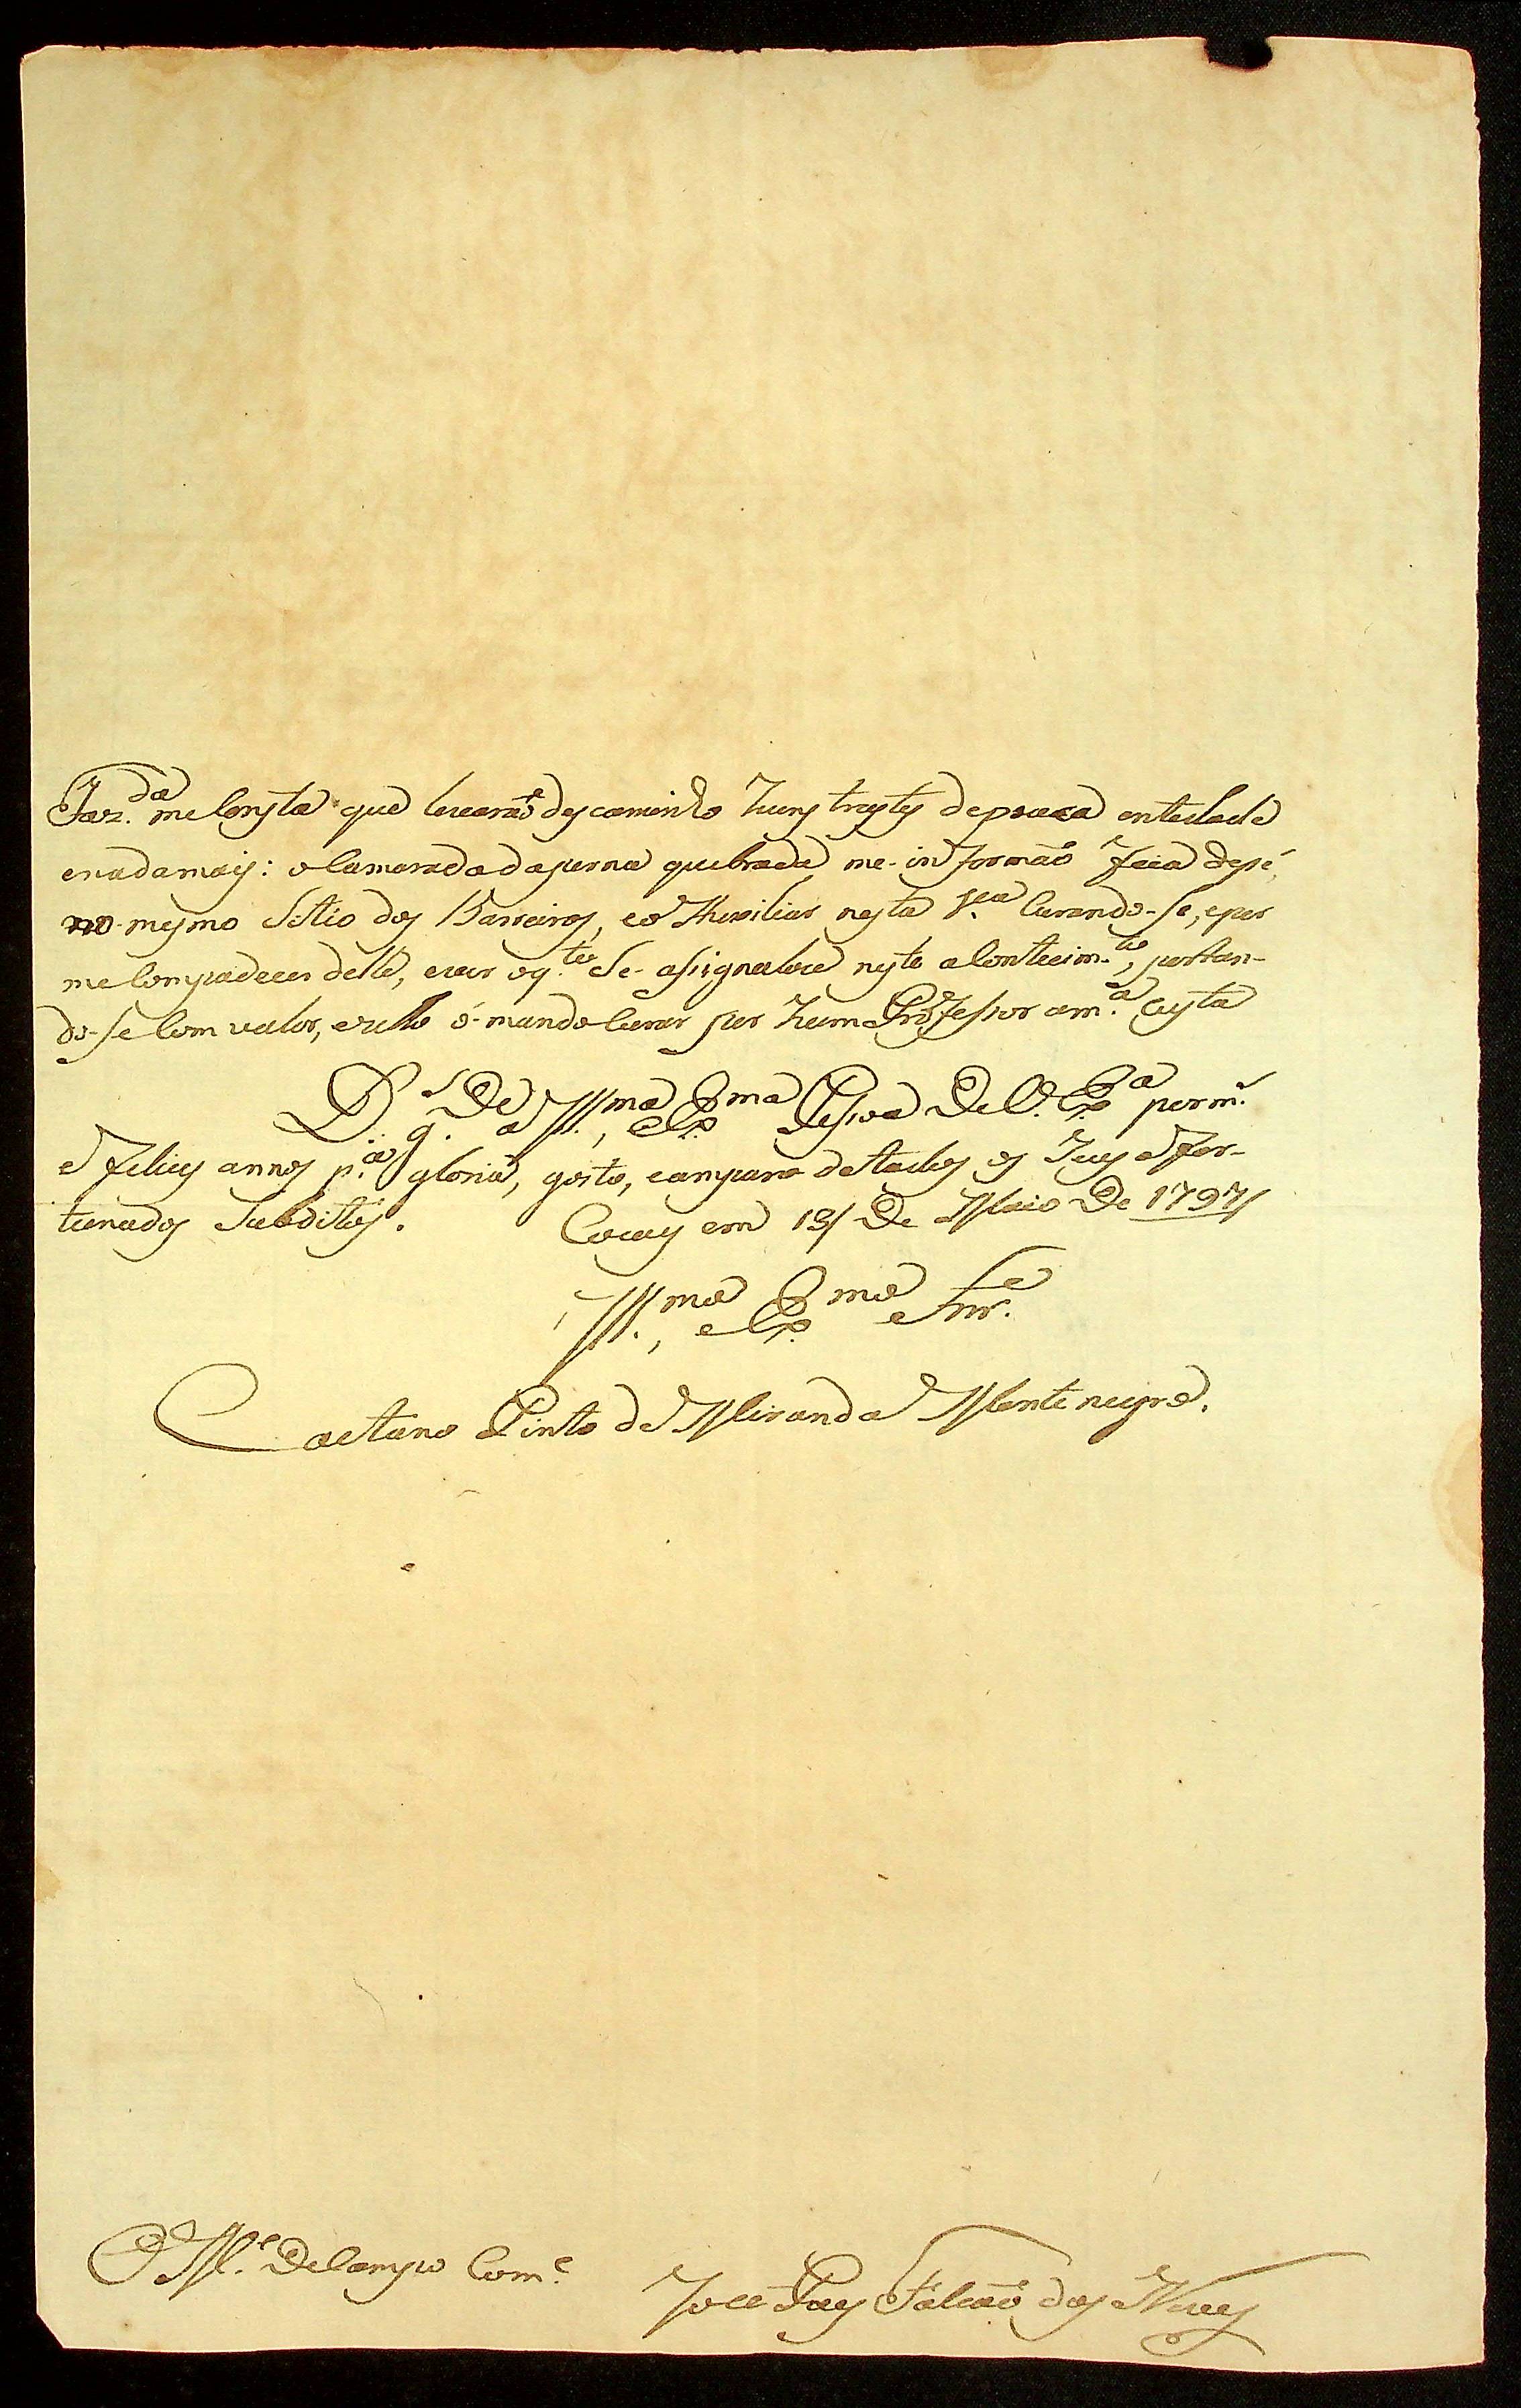 Faz.da me consta que levaraõ descaminho huns trastes de prata
e nada mais: o Camarada da perna quebrada me-informaõ ficia de pé,
no-mesmo Sitio dos Barreiros, e o Auxiliar nesta V.ª Curando-se, e por
me Compadecer delle, e ser o q.to Se-asignalou neste aContecim.to, portan-
do-se Com valor, e zello ó-mando Curar por hum Professor a m.ª Custa
D.s g.de a Ill.ma, e Ex.ma Pesoa De V. Ex.ª por m.s
e felices annos p.ª gloria, gosto, e amparo de todos os Seus afor-
tunados Subditos. Cocaes em 19 De Maio De 1797
Ill.mo, e Ex.mo Snr.
Caetano Pinto de Miranda Montenegro.
O M.e De Campo Com.e
Joze Paes Falcaõ das Neves